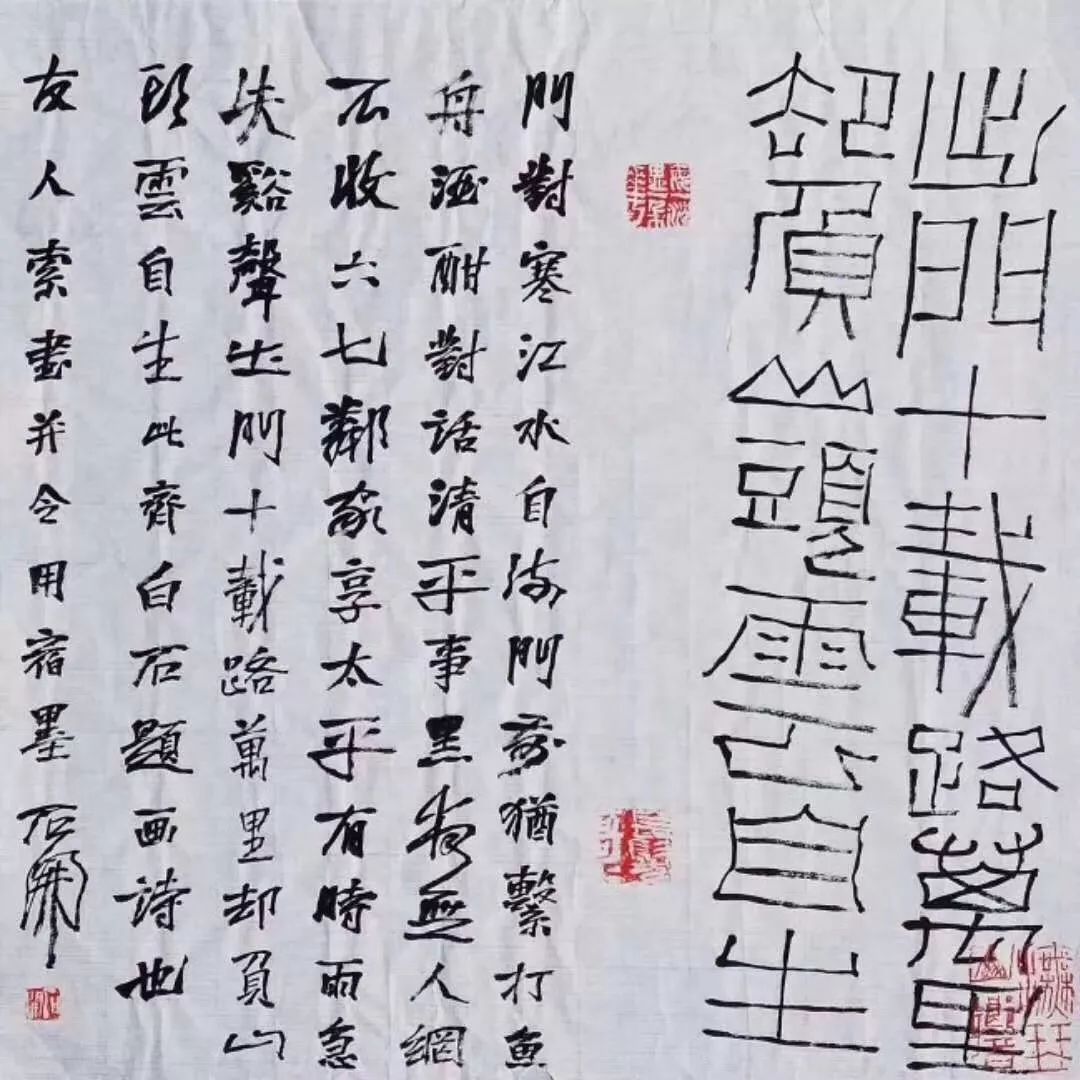 出門十載路萬里
却負山頭雲自生
門對寒江水自流門前猶繫打魚
舟酒酣對話清平事黑夜無人網
不收六七鄰家享太平有時雨急
失谿聲出門十載路萬里却負山
頭雲自生此齊白石題画詩也
友人索書并令用宿墨石開